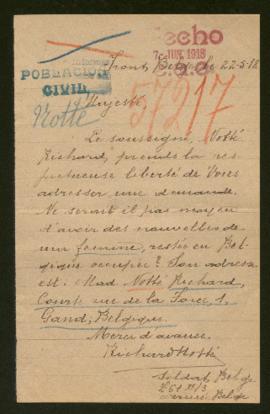 Hecho
7- JUN. 1918
Front Belge le 22-5-18
POBLACION
CIVIL
57217
Notté
Majesté
Le soussigné, Notté
Richard, prends la res
pectueuse liberté de Vous
adresser une demande.
Ne serait il pas moyen
d'avoir des nouvelles de
ma femme, restée en Bel
gique occupée? Son adresse
est: Mad Notté Richard,
Courte rue de la
Gand, Belgique.
Merci d'avance.
Richard Notté
Soldat Belge
Armée Belge